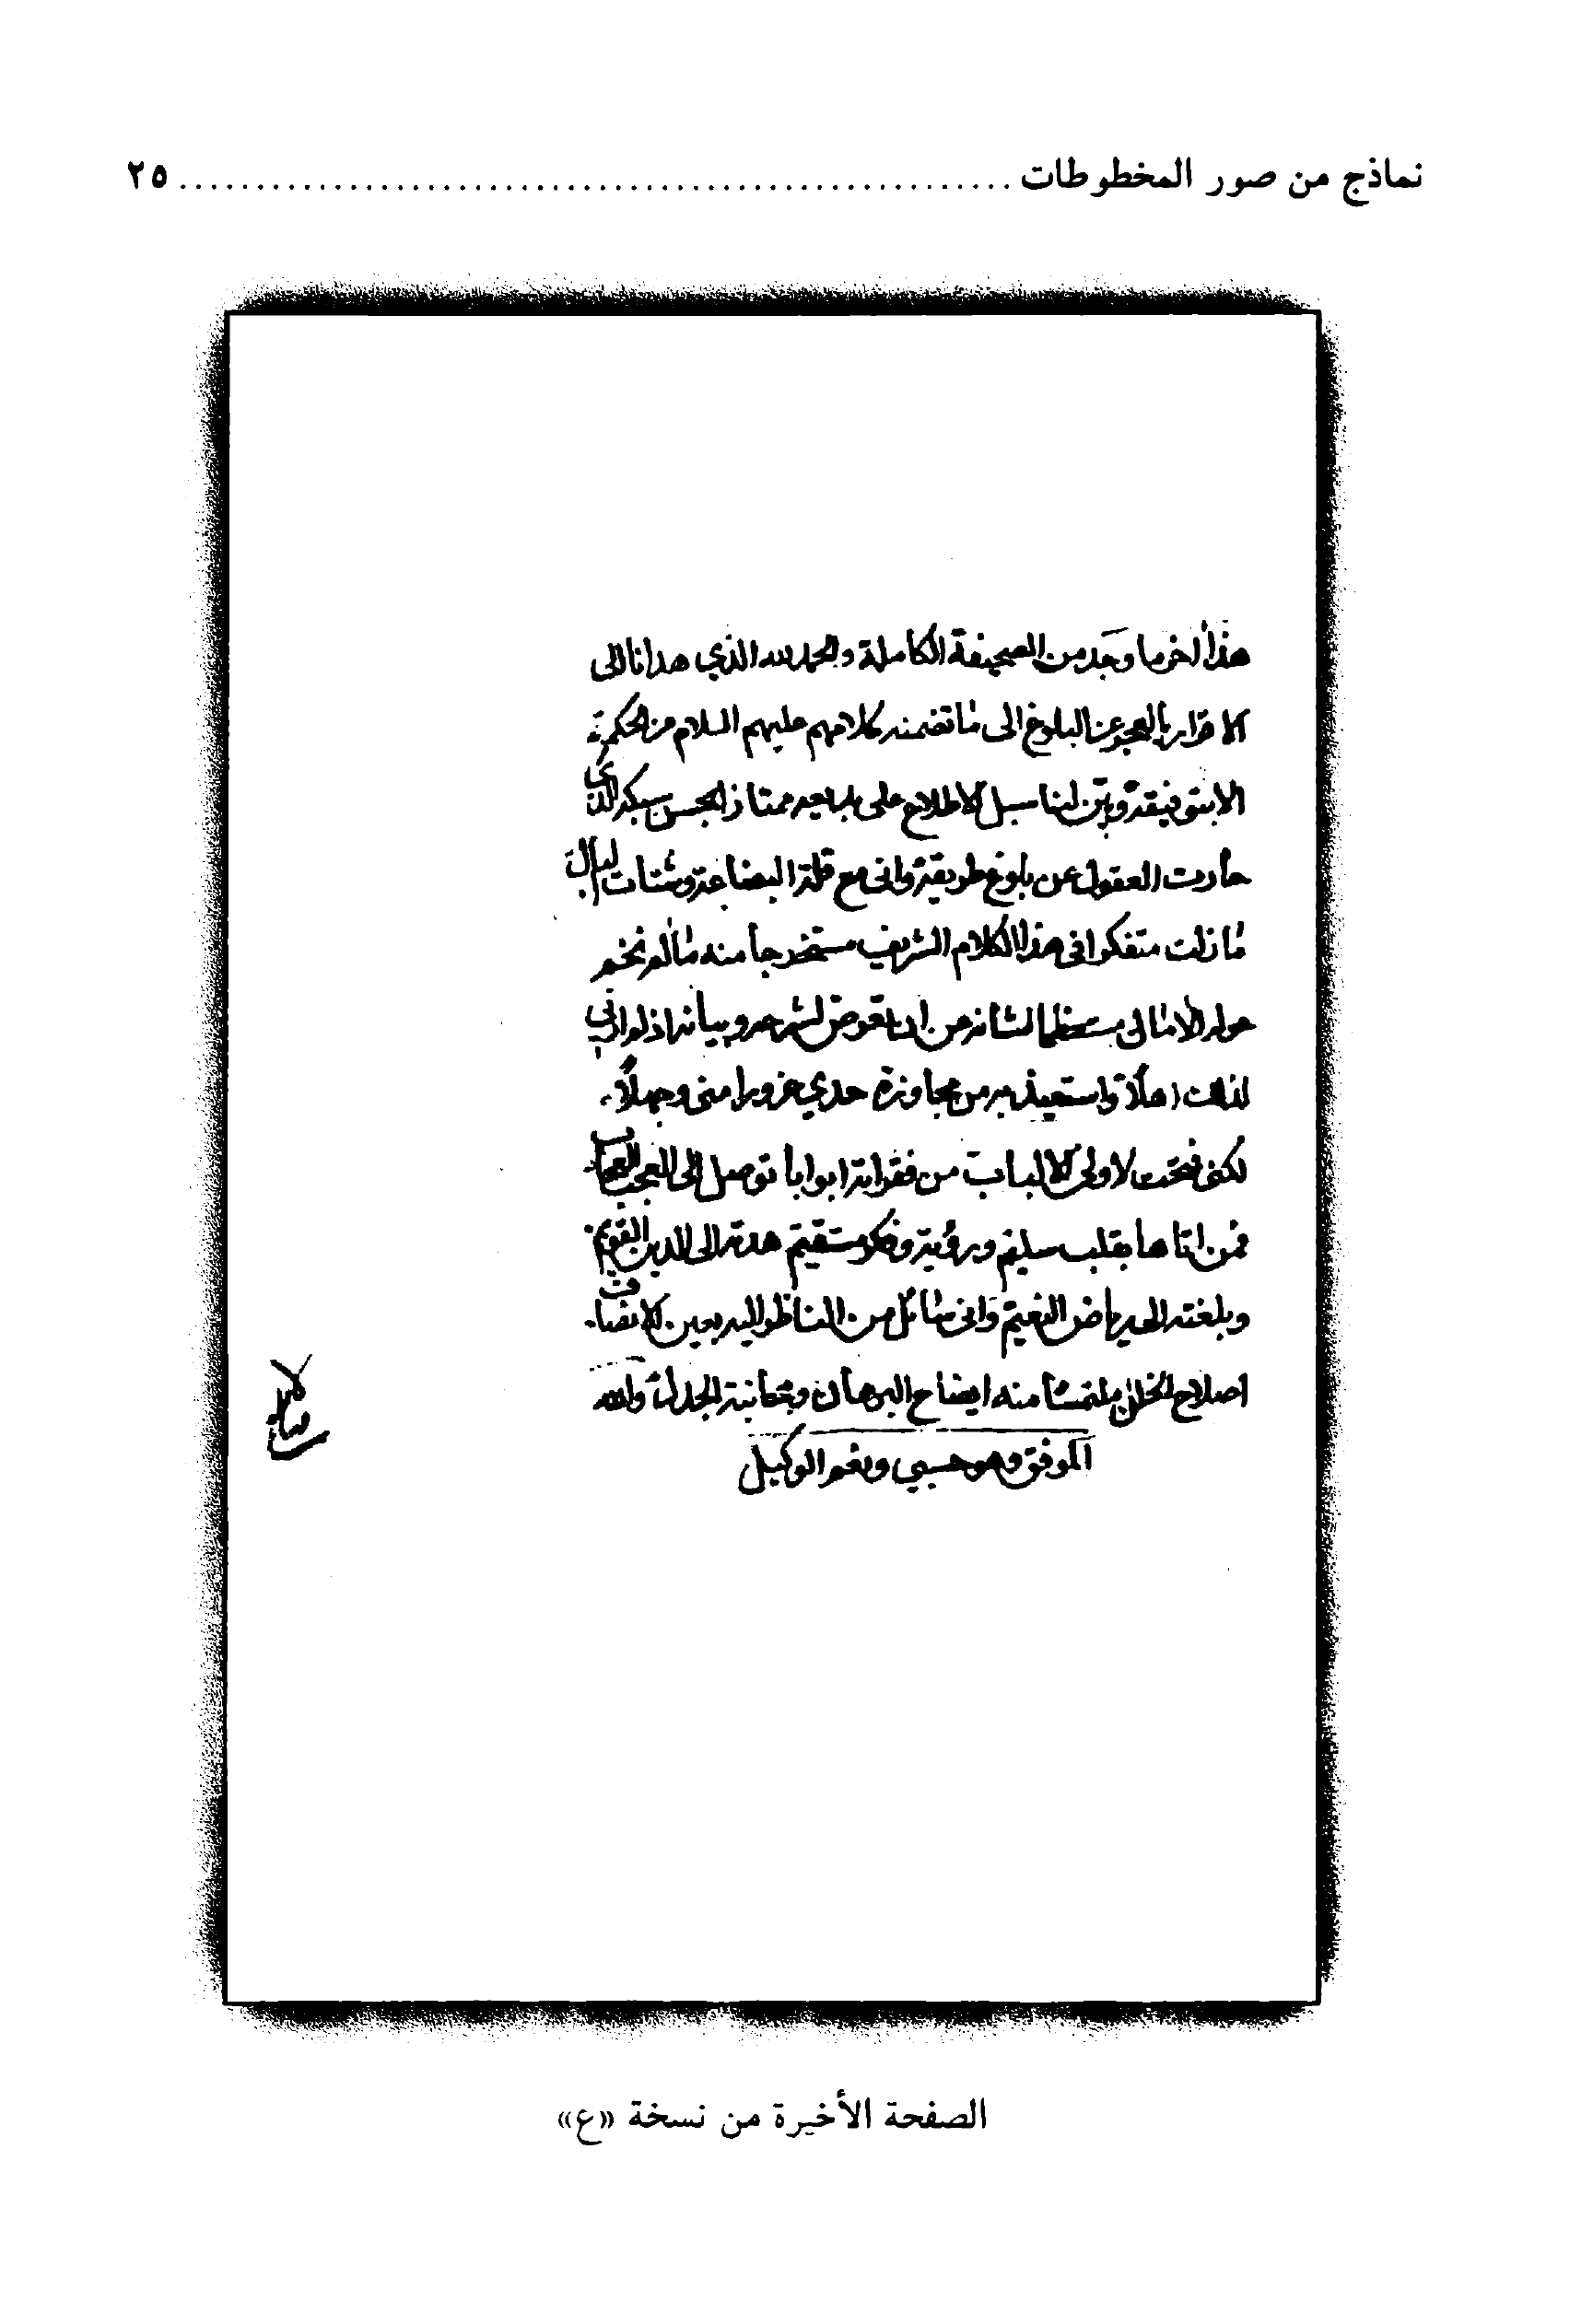 نماذج من صور المخطوطات ................ ٢٥
هذا اخر ما وجد من الصحيفة الكاملة والحمد لله الذي هدانا الى
الاقرار بالعجز عن البلوغ الى ما تضمنه كلامهم عليهم السلام من الحكمة
لنا سبيل الاطلاع على ممتاز الحسن سبكه الذي
حارت العقول عن بلوغ طريقته واني مع قلة البضاعة وشتات البال
ما زلت متفكرا في هذا الكلام الشريف مستخرجا منه ما لم تحم
حوله الاماني مستعظما لشانه من ان اتعرض لشرحه وبيانه اذ لم ارني
لذلك اهلا واستعيذ به من مجاوزة حدي غرورا مني وجهلا
لكني فتحت لاولي الالباب من فقراته ابوابا توصل الى العجب العجاب
فمن اتاها بقلب سليم ورؤية وفكر مستقيم هدته الى الدين القويم
وبلغته الى رياض النعيم واني سائل من الناظر اليه بعين الانصاف
اصلاح الخلل ملتمسا منه ايضاح البرهان ومجانبة الجدل والله
الموفق وهو حسبي ونعم الوكيل
الصفحة الأخيرة من نسخة «ع»